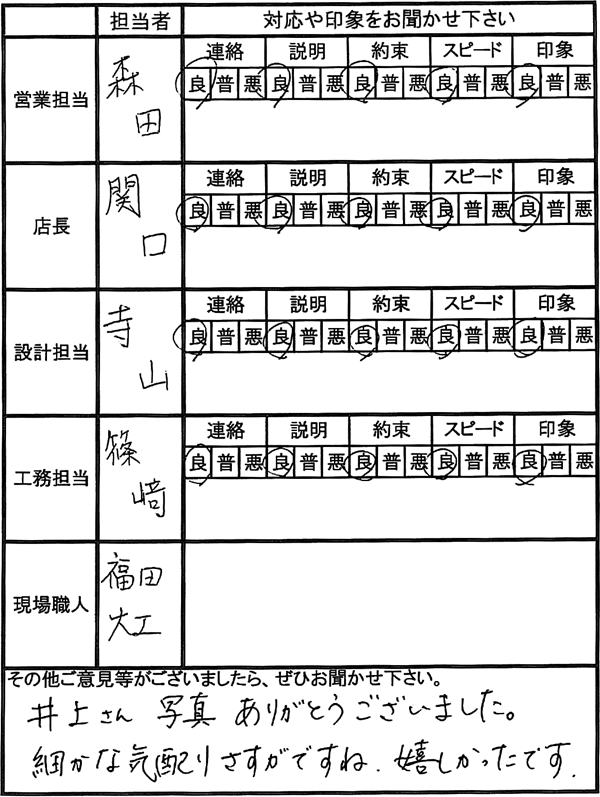 担当者 対応や印象をお聞かせ下さい
営業担当 森田 連絡 説明 約束 スピード 印象
良 普 悪 良 普 悪 良 普 悪 良 普 悪 良 普 悪
店長 関口 連絡 説明 約束 スピード 印象
良 普 悪 良 普 悪 良 普 悪 良 普 悪 良 普 悪
設計担当 寺山 連絡 説明 約束 スピード 印象
良 普 悪 良 普 悪 良 普 悪 良 普 悪 良 普 悪
工務担当 篠﨑 連絡 説明 約束 スピード 印象
良 普 悪 良 普 悪 良 普 悪 良 普 悪 良 普 悪
現場職人 福田
大工
その他ご意見等がございましたら、ぜひお聞かせ下さい。
井上さん 写真 ありがとうございました。
細かな気配りさすがですね、嬉しかったです.